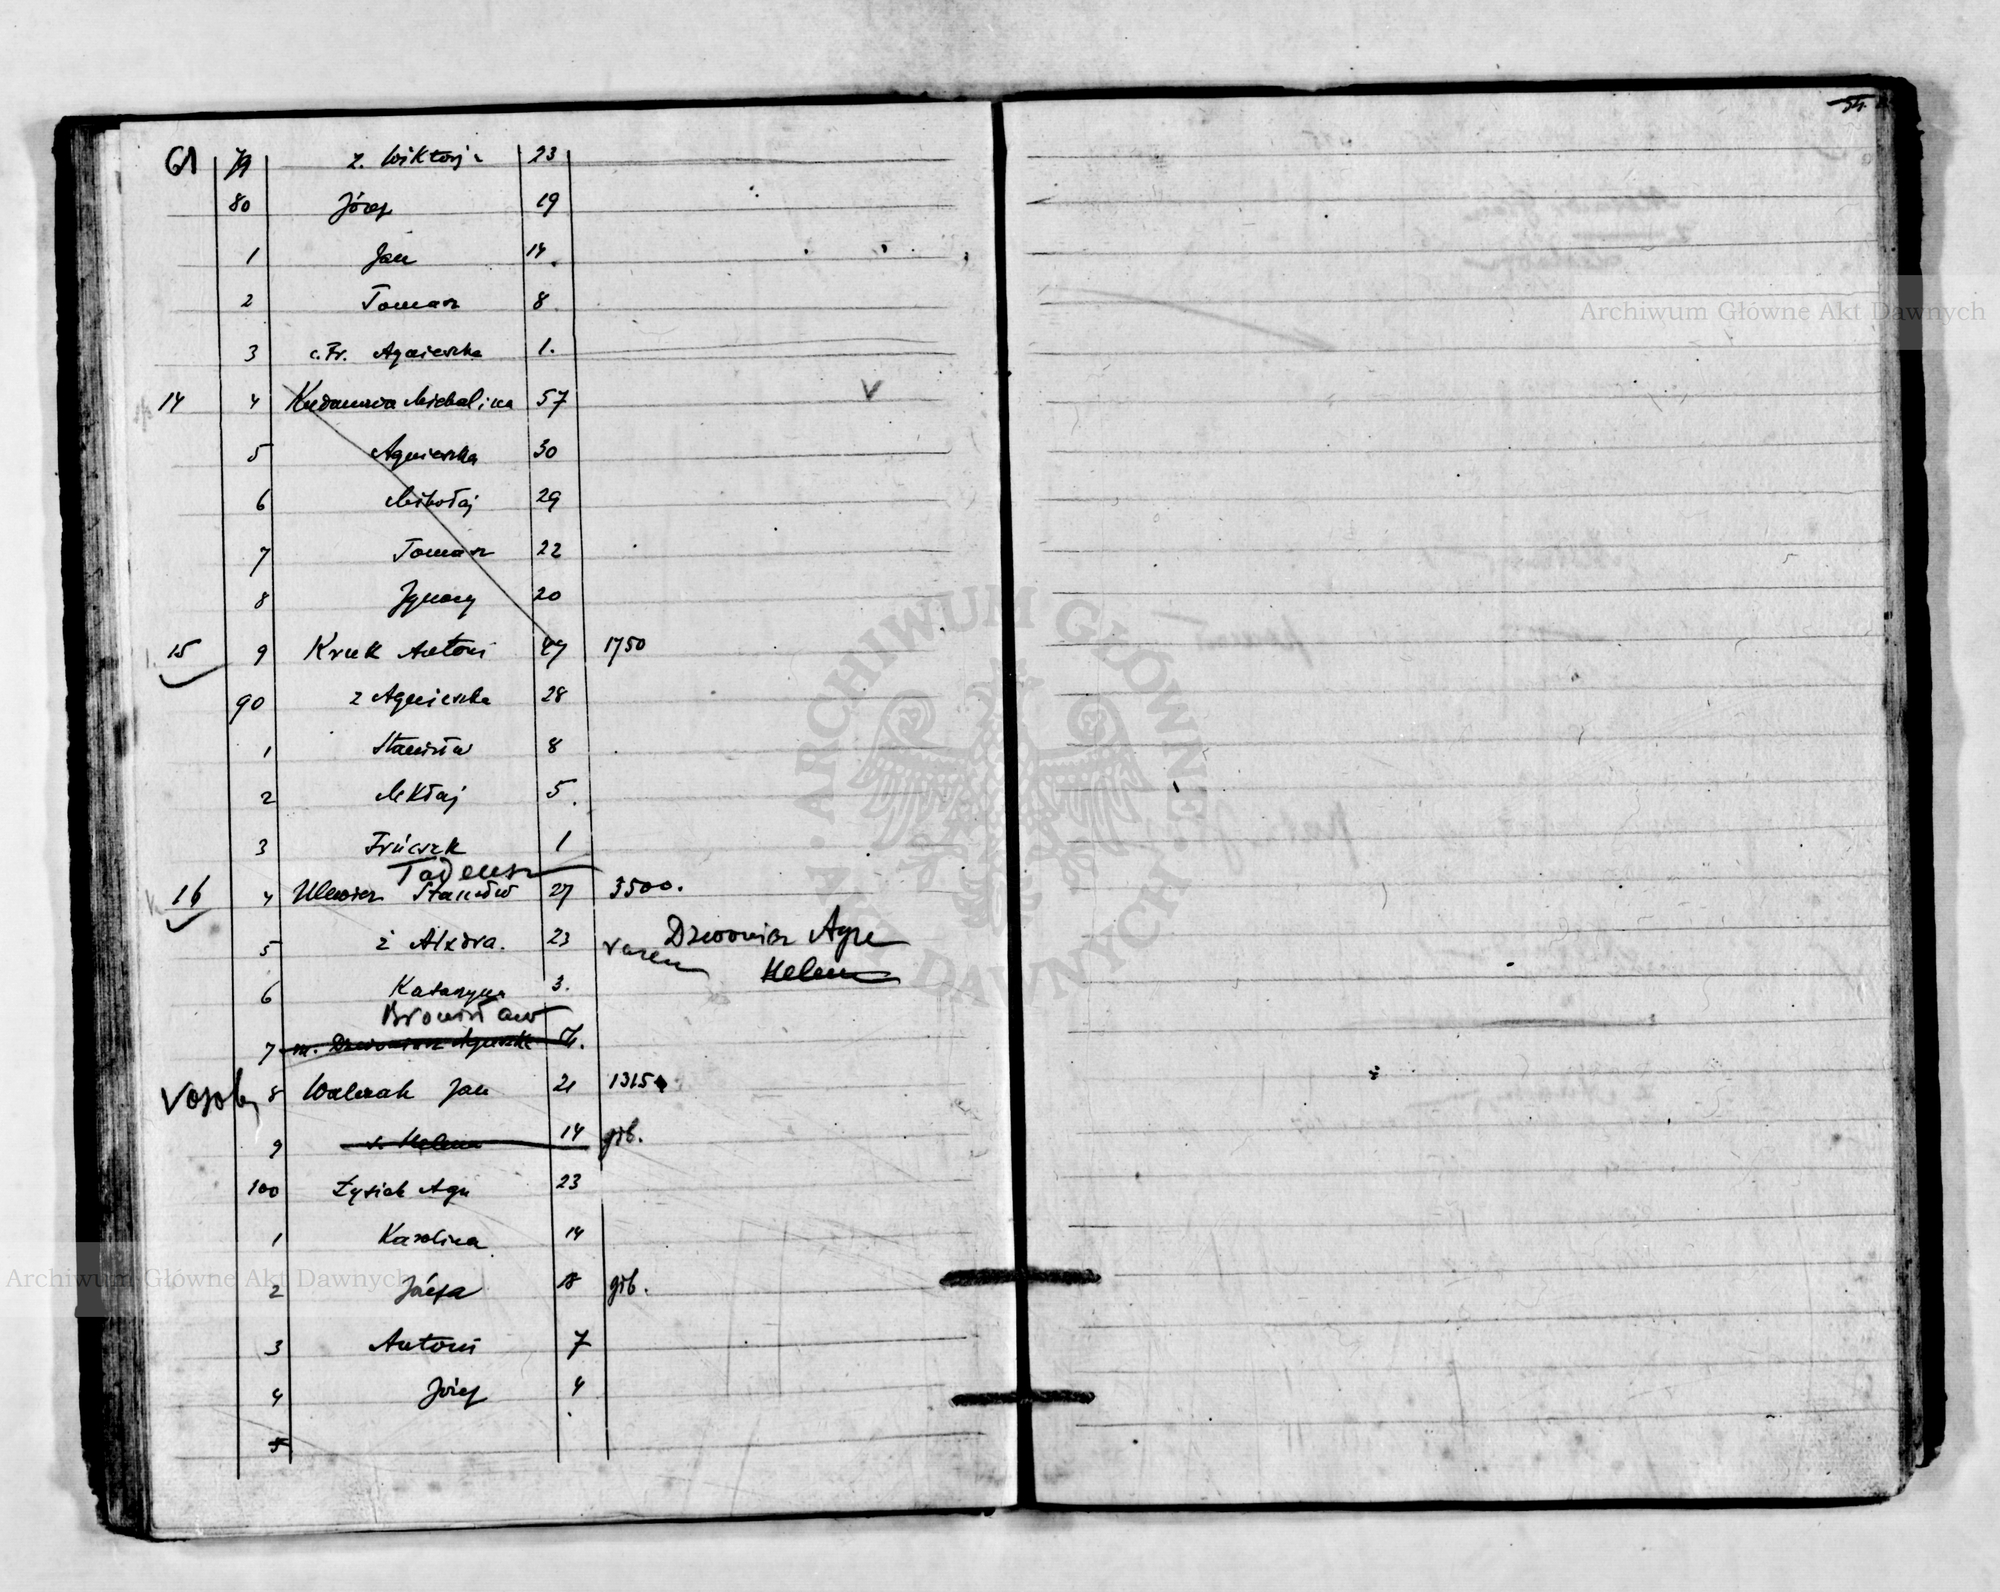 61 79 ż. Wiktorja 23
80 Józef 19
1 Jan 14.
2 Tomasz 8.
3 c. Fr. Agnieszka 1.
14 4 Michalina 57 V
5 Agnieszka 30
6 Mikołaj 29
7 Tomasz 22
8 Ignacy 20
15 9 Kruk Antoni 47 1750
90 ż Agnieszka 28
1 Stanisław 8
2 Mikłaj 5.
3 1
Tadeusz
16 4 Stanisław 27 3500.
5 ż Alxdra. 23 razem Agn
Helena
6 Katarzyna 3.
Bronisław
7 m.
V osob 8 Walczak Jan 21 1315
9 s. Helena 14 gib.
100 Łysiak Agn 23
1 Karolina 14
2 Józefa 18 gib.
3 Antoni 7
4 Józef 4
5
Archiwum Główne Akt Dawnych
ARCHIWUM GŁÓWNE AKT DAWNYCH
Archiwum Główne Akt Dawnych